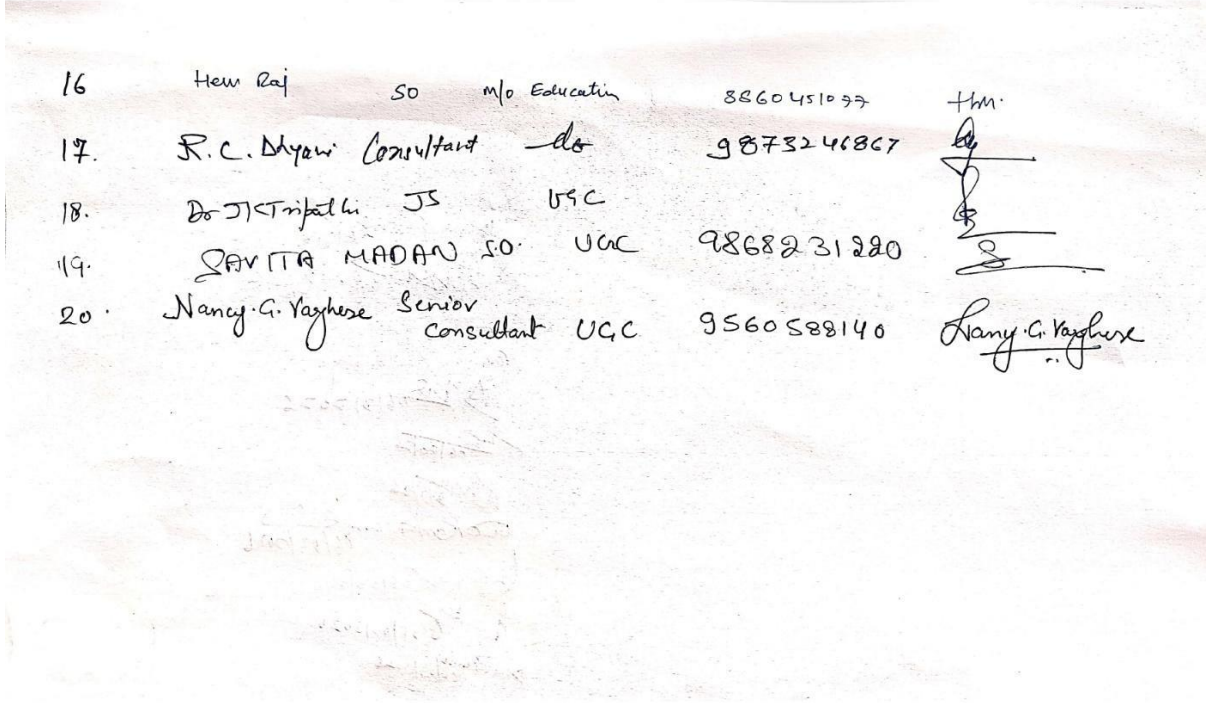 16 Hem Raj SO M/o Education 8860451077 HM.
17. R.C. Dhyani Consultant do 9873246867
18. Dr JK Tripathi JS UGC
19. SAVITA MADAN S.O. UGC 9868231220
20. Nancy.G.Varghese Senior Consultant UGC 9560588140 Nancy.G.Varghese